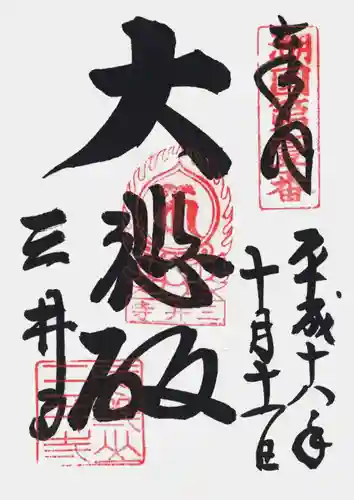 奉拝
平成十八年
十月十一日
大悲殿
三井寺
三井寺